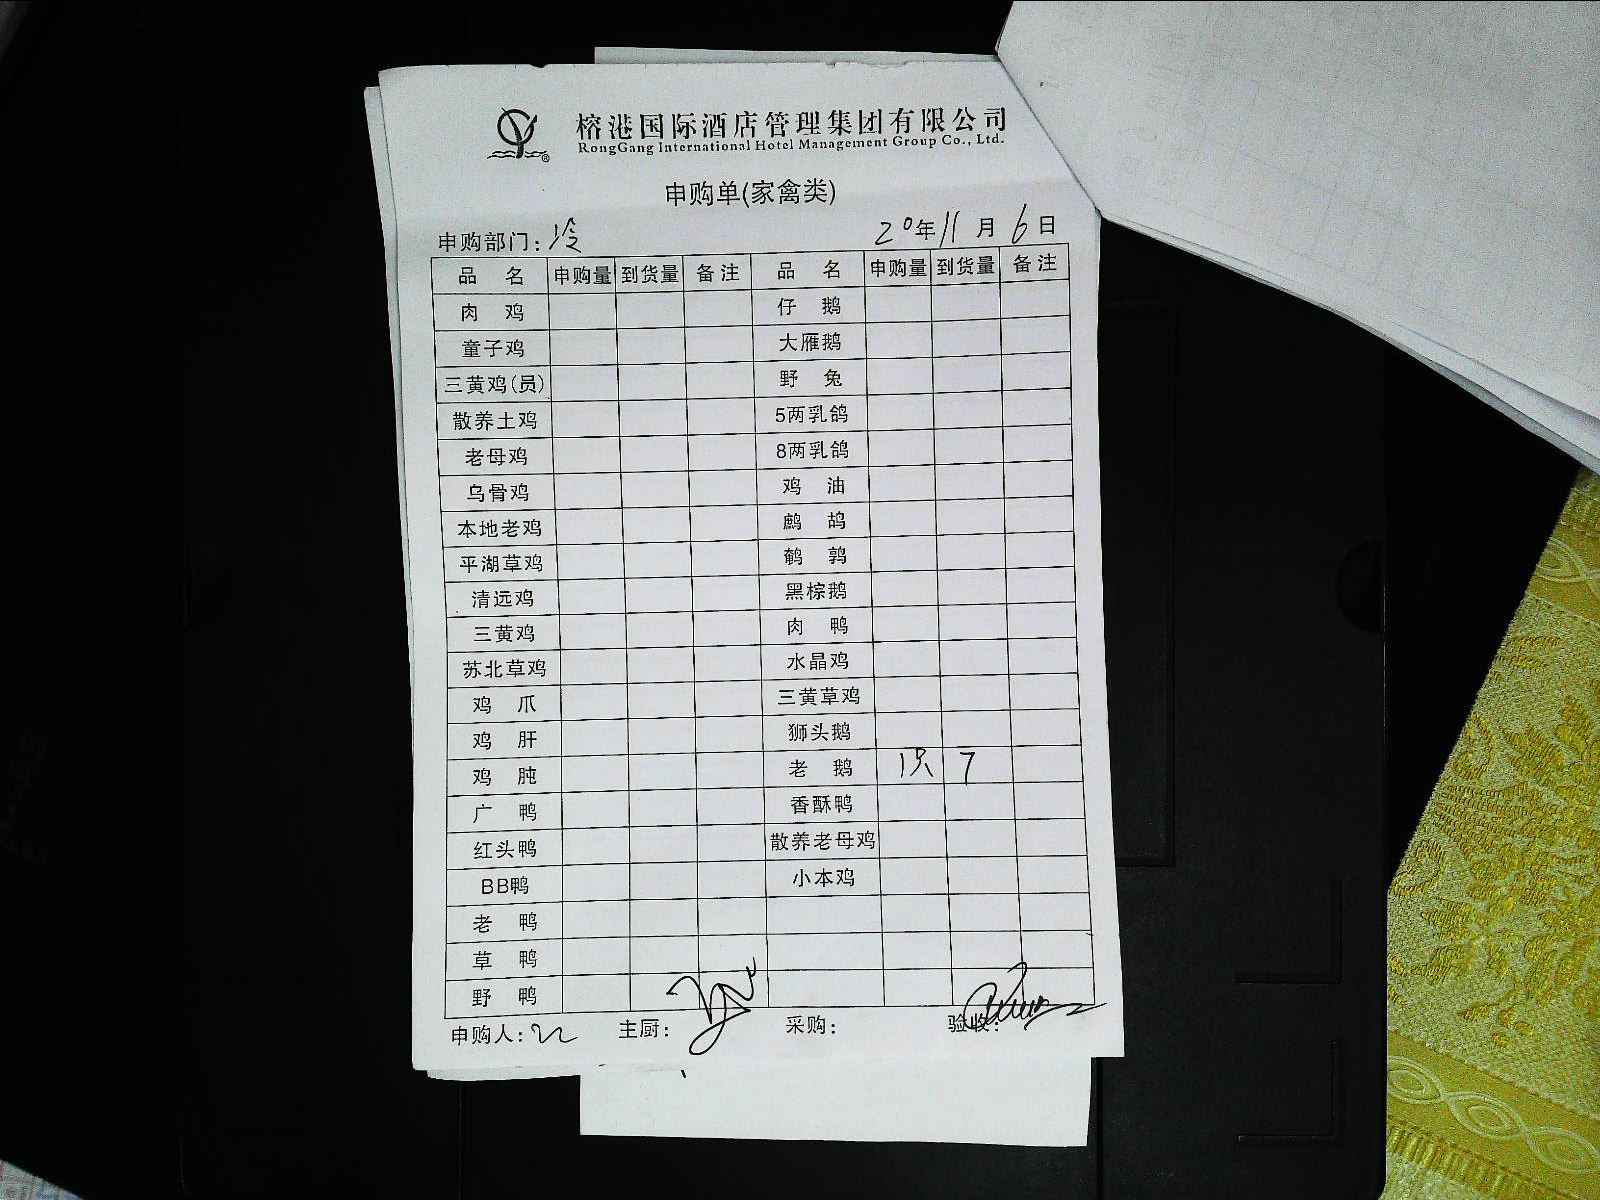 榕港国际酒店管理集团有限公司
RongGang International Hotel Management Group Co., Ltd.
申购单(家禽类)
申购部门: 冷 20年11月6日
品 名 申购量 到货量 备注 品 名 申购量 到货量 备注
肉 鸡 仔 鹅
童子鸡 大雁鹅
三黄鸡(员) 野 兔
散养土鸡 5两乳鸽
老母鸡 8两乳鸽
乌骨鸡 鸡 油
本地老鸡 鹧 鸪
平湖草鸡 鹌 鹑
清远鸡 黑棕鹅
三黄鸡 肉 鸭
苏北草鸡 水晶鸡
鸡 爪 三黄草鸡
鸡 肝 狮头鹅
鸡 肫 老 鹅 1只 7
广 鸭 香酥鸭
红头鸭 散养老母鸡
BB鸭 小本鸡
老 鸭
草 鸭
野 鸭
申购人: 主厨: 采购: 验收: